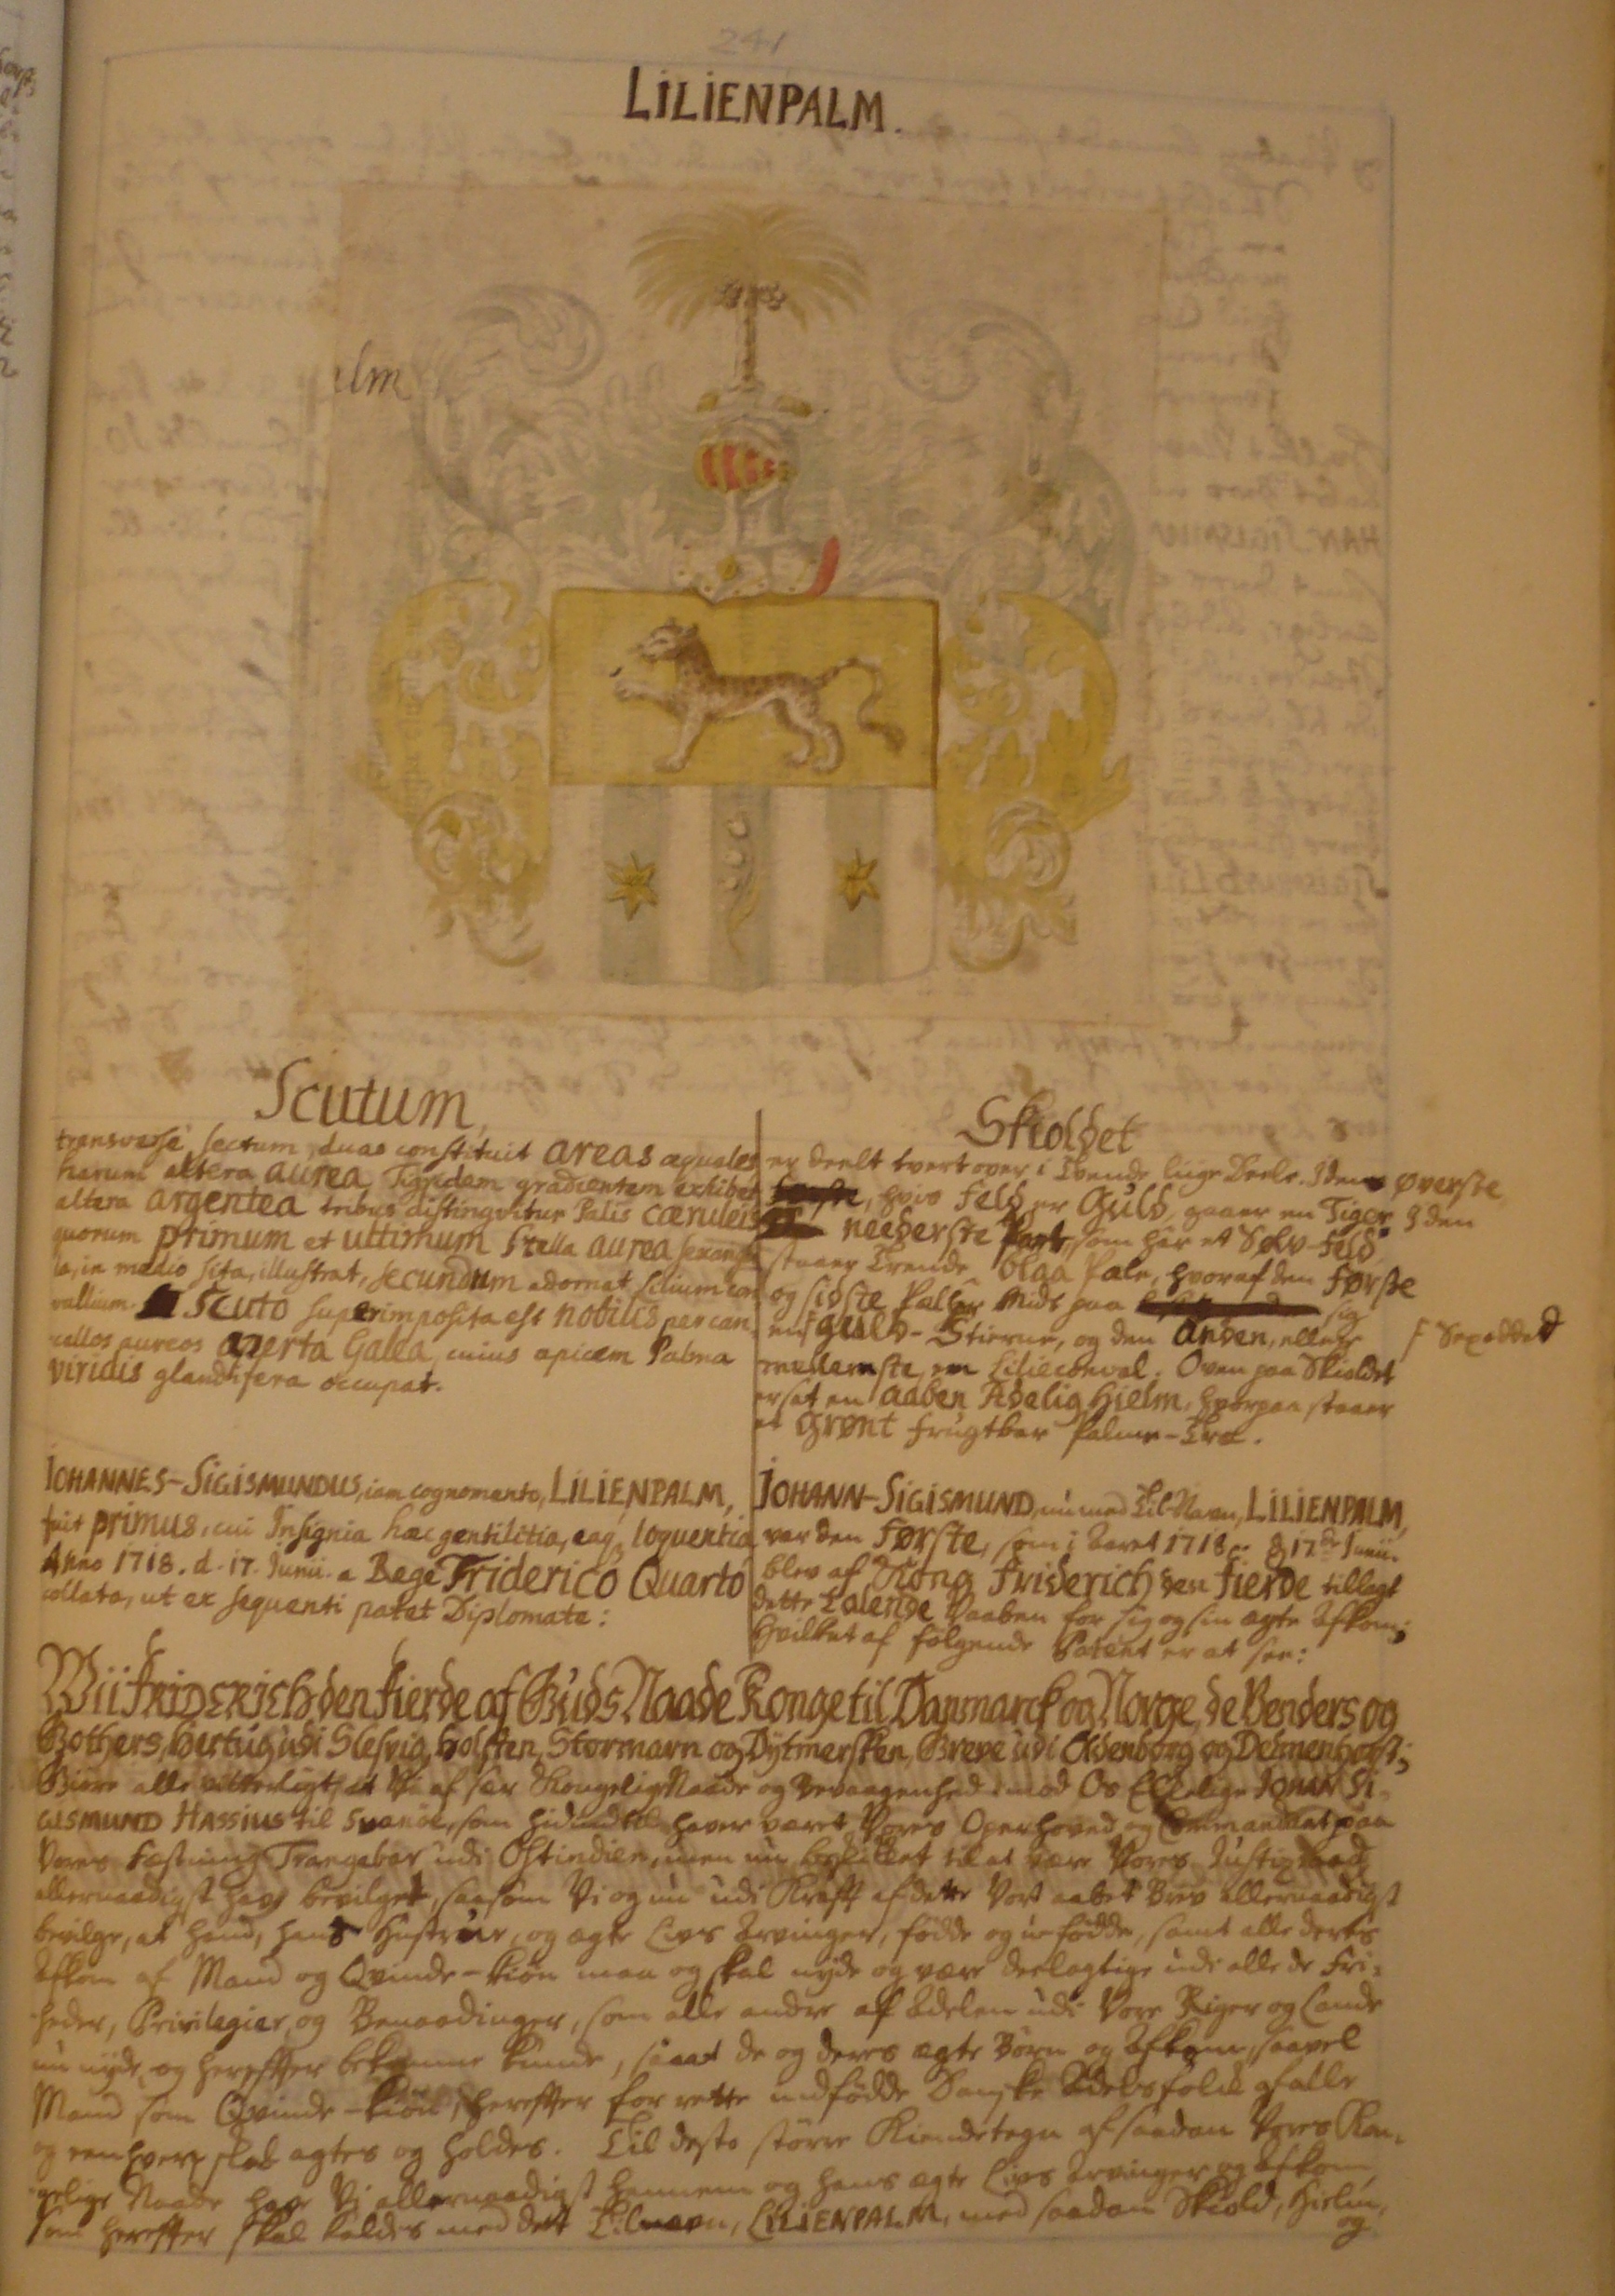 241
LILIENPALM.
elm
Scutum,
transverse sectum, duas constituit areas æquales
harum altera aurea Tigridem gradientem exhibet
altera argentea tribus distingvitur Palis cæruleis
quorum primum et ultimum Stella aurea sexangu
la, in medio sita, illustrat, secundum adornat lilium con
vallium. Scuto superimposita est nobilis per can
cellos aureos aperta Galea, cuius apicem Palma
viridis glandifera occupat.
Skioldet
er deelt tvert over i Tvende liige Deele. I den øverste
, hvis Feld er Guld, gaaer en Tiger I den
neederste Part, som har et Sølv-Feld,
staaer Trende blaa Pale, hvoraf den Første
og sidste Pal har Midt paa sig
en Guld-Stierne, og den Anden, eller
F Sexoddet
mellemste, en Lilieconval. Oven paa Skioldet
er sat en aaben Adelig Hielm, hvorpaa staaer
et Grønt frugtbar Palme-Træ.
IOHANNES-SIGISMUNDUS, iam cognomento, LILIENPALM,
fuit primus, cui Insignia hæc gentilitia, eaq; loquentia
Anno 1718. d. 17. Junii. a Rege Friderico Quarto
collata, ut ex sequenti patet Diplomate:
IOHANN-SIGISMUND, nu med Til-Navn, LILIENPALM,
var den Første, som i Aaret 1718 17de Junii.
blev af Kong Friderich den Fierde tillagt
dette Talende Vaaben for sig og sin ægte Afkom;
Hvilket af følgende Patent er at see:
Wii FRIDERICH den Fierde af Guds Naade Konge til Danmarck og Norge, de Venders og
Gothers, Hertug udi Slesvig, Holsten, Stormarn og Dytmersken, Greve udi Oldenborg og Delmenhorst;
Giøre alle vitterligt, at Vi af sær Kongelig Naade og Bevaagenhed imod Os Elskelige JOHAN SI-
GISMUND HASSIUS til Svanöe, som hidindtil haver været Vores Overhoved og Commandant paa
Vores Fæstning Tranqebar udi Ostindien, men nu beskikket til at være Vores Justizraad,
allernaadigst have bevilget, saasom Vi og nu udi Krafft af dette Vort aabet Brev allernaadigst
bevilge, at hand, hans Hustrue, og ægte Livs Arvinger, födde og uefödde, samt alle deres
Afkom af Mand og Qvinde-kiön maa og skal nyde og være deelagtige udi alle de Fri-
heder, Privilegier, og Benaadinger, som alle andre af Adelen udi Vore Riger og Lande
nu nyde, og hereffter bekomme kunde, saa at de og deres ægte Börn og Afkom, saavel
Mand som Qvinde-kiön, hereffter for rette indfödde Danske Adelsfolck af alle
og eenhver skal agtes og holdes. Til desto större Kiendetegn af saadan Vores Kon-
gelige Naade have Vi allernaadigst hannem og hans ægte Livs Arvinger og Afkom,
som hereffter skal kaldes med det Tilnavn, LILIENPALM, med saadan Skiold, Hielm,
og